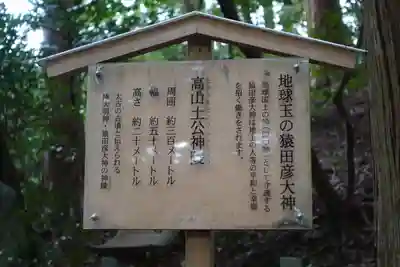 地球玉の猿田彦大神
地球国土の
として守護する
猿田彦大神は地上の人等の平和と幸福
を招く働きをされます。
高山土公神陵
周囲 約三百メートル
幅 約五十メートル
高さ 約二十メートル
太古の古墳と伝えられる
猿田彦大神の神陵